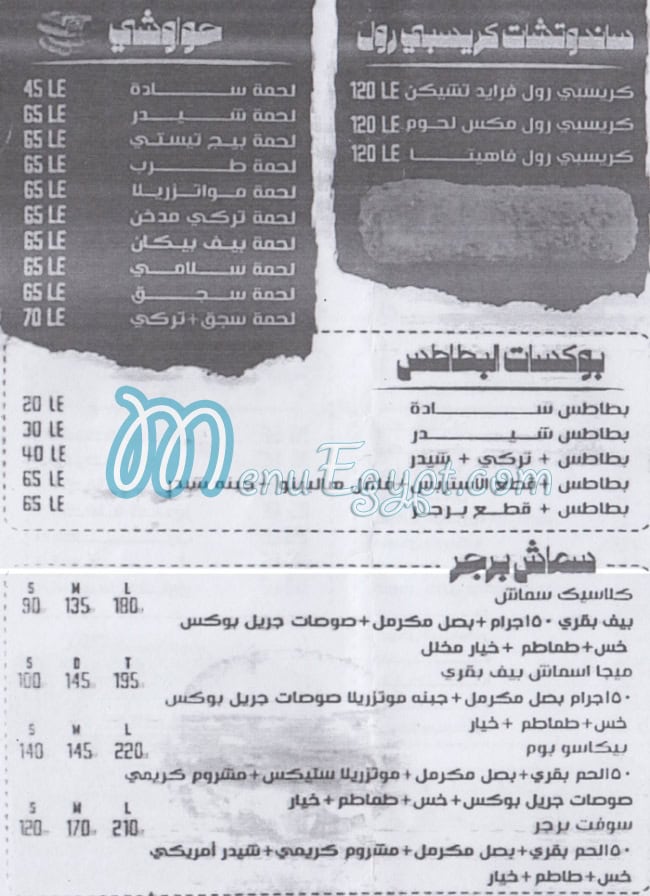 ساندوتشات كريسبي رول
كريسبي رول فرايد تشيكن 120 LE
كريسبي رول مكس لحوم 120 LE
كريسبي رول فاهيتا 120 LE
حواوشي
لحمة سادة 45 LE
لحمة شيدر 65 LE
لحمة بيج تيستي 65 LE
لحمة طرب 65 LE
لحمة مواتزريلا 65 LE
لحمة تركي مدخن 65 LE
لحمة بيف بيكان 65 LE
لحمة سلامي 65 LE
لحمة سجق 65 LE
لحمة سجق+تركي 70 LE
بوكسات البطاطس
بطاطس سادة 20 LE
بطاطس شيدر 30 LE
بطاطس + تركي + شيدر 40 LE
بطاطس +قطع الاستربس+فلفل هالبينو + جبنه شيدر 65 LE
بطاطس + قطع برجر 65 LE
MenuEgypt.com
سماش برجر
كلاسيك سماش
S M L
90 135 180
بيف بقري ١٥٠جرام+بصل مكرمل+صوصات جريل بوكس
خس+طماطم +خيار مخلل
ميجا اسماش بيف بقري
S D T
100 145 195
١٥٠جرام بصل مكرمل+جبنه موتزريلا صوصات جريل بوكس
خس+طماطم +خيار
بيكاسو بوم
S M L
140 145 220
١٥٠لحم بقري+بصل مكرمل+موتزريلا ستيكس+مشروم كريمي
صوصات جريل بوكس+خس+طماطم+خيار
سوفت برجر
S M L
120 170 210
١٥٠لحم بقري+بصل مكرمل+مشروم كريمي+شيدر أمريكي
خس+طاطم+خيار